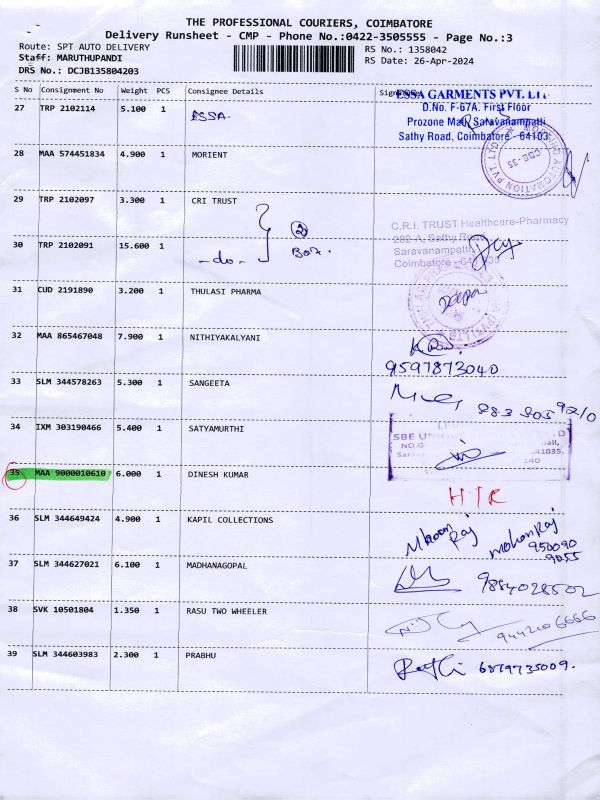 THE PROFESSIONAL COURIERS, COIMBATORE
Delivery Runsheet - CMP - Phone No.:0422-3505555 - Page No.:3
Route: SPT AUTO DELIVERY
RS No.: 1358042
Staff: MARUTHUPANDI
RS Date: 26-Apr-2024
DRS No.: DCJB135804203
S No Consignment No Weight PCS Consignee Details
ESSA GARMENTS PVT. LTD
27 TRP 2102114 5.100 1 ESSA.
D.No. F-67A. First Floor
Prozone Mall, Saravanampatti
Sathy Road, Coimbatore - 64103
28 MAA 574451834 4.900 1 MORIENT
CBE-35
AUTOMATION PVT LTD
29 TRP 2102097 3.300 1 CRI TRUST
C.R.I. TRUST Healthcare-Pharmacy
2 Box.
30 TRP 2102091 15.600 1 -do-
Sathy Road
Saravanampatti,
Coimbatore -
31 CUD 2191890 3.200 1 THULASI PHARMA
32 MAA 865467048 7.900 1 NITHIYAKALYANI
9597873040
33 SLM 344578263 5.300 1 SANGEETA
34 IXM 303190466 5.400 1 SATYAMURTHI
SBE
35 MAA 9000010610 6.000 1 DINESH KUMAR
36 SLM 344649424 4.900 1 KAPIL COLLECTIONS
Mohan Raj
950090
9055
37 SLM 344627021 6.100 1 MADHANAGOPAL
9884028502
38 SVK 10501804 1.350 1 RASU TWO WHEELER
9442106666
39 SLM 344603983 2.300 1 PRABHU
6379735009.